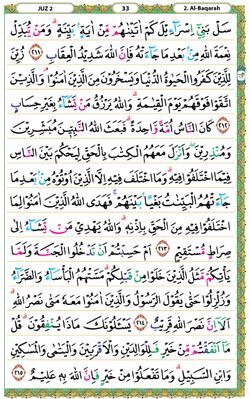 JUZ 2 33 2. Al-Baqarah
سَلْ بَنِيْٓ اِسْرَآءِيْلَ كَمْ اٰتَيْنٰهُمْ مِّنْ اٰيَةٍۢ بَيِّنَةٍ ۗ وَمَنْ يُّبَدِّلْ
نِعْمَةَ اللّٰهِ مِنْۢ بَعْدِ مَا جَآءَتْهُ فَاِنَّ اللّٰهَ شَدِيْدُ الْعِقَابِ ٢١١ زُيِّنَ
لِلَّذِيْنَ كَفَرُوا الْحَيٰوةُ الدُّنْيَا وَيَسْخَرُوْنَ مِنَ الَّذِيْنَ اٰمَنُوْا ۘ وَالَّذِيْنَ
اتَّقَوْا فَوْقَهُمْ يَوْمَ الْقِيٰمَةِ ۗ وَاللّٰهُ يَرْزُقُ مَنْ يَّشَآءُ بِغَيْرِ حِسَابٍ
٢١٢ كَانَ النَّاسُ اُمَّةً وَّاحِدَةً ۗ فَبَعَثَ اللّٰهُ النَّبِيّٖنَ مُبَشِّرِيْنَ
وَمُنْذِرِيْنَ ۖ وَاَنْزَلَ مَعَهُمُ الْكِتٰبَ بِالْحَقِّ لِيَحْكُمَ بَيْنَ النَّاسِ
فِيْمَا اخْتَلَفُوْا فِيْهِ ۗ وَمَا اخْتَلَفَ فِيْهِ اِلَّا الَّذِيْنَ اُوْتُوْهُ مِنْۢ بَعْدِ مَا
جَآءَتْهُمُ الْبَيِّنٰتُ بَغْيًاۢ بَيْنَهُمْ ۚ فَهَدَى اللّٰهُ الَّذِيْنَ اٰمَنُوْا لِمَا
اخْتَلَفُوْا فِيْهِ مِنَ الْحَقِّ بِاِذْنِهٖ ۗ وَاللّٰهُ يَهْدِيْ مَنْ يَّشَآءُ اِلٰى
صِرَاطٍ مُّسْتَقِيْمٍ ٢١٣ اَمْ حَسِبْتُمْ اَنْ تَدْخُلُوا الْجَنَّةَ وَلَمَّا
يَأْتِكُمْ مَّثَلُ الَّذِيْنَ خَلَوْا مِنْ قَبْلِكُمْ ۗ مَسَّتْهُمُ الْبَأْسَآءُ وَالضَّرَّآءُ
وَزُلْزِلُوْا حَتّٰى يَقُوْلَ الرَّسُوْلُ وَالَّذِيْنَ اٰمَنُوْا مَعَهٗ مَتٰى نَصْرُ اللّٰهِ ۗ
اَلَآ اِنَّ نَصْرَ اللّٰهِ قَرِيْبٌ ٢١٤ يَسْـَٔلُوْنَكَ مَاذَا يُنْفِقُوْنَ ۗ قُلْ
مَآ اَنْفَقْتُمْ مِّنْ خَيْرٍ فَلِلْوَالِدَيْنِ وَالْاَقْرَبِيْنَ وَالْيَتٰمٰى وَالْمَسٰكِيْنِ
وَابْنِ السَّبِيْلِ ۗ وَمَا تَفْعَلُوْا مِنْ خَيْرٍ فَاِنَّ اللّٰهَ بِهٖ عَلِيْمٌ ٢١٥